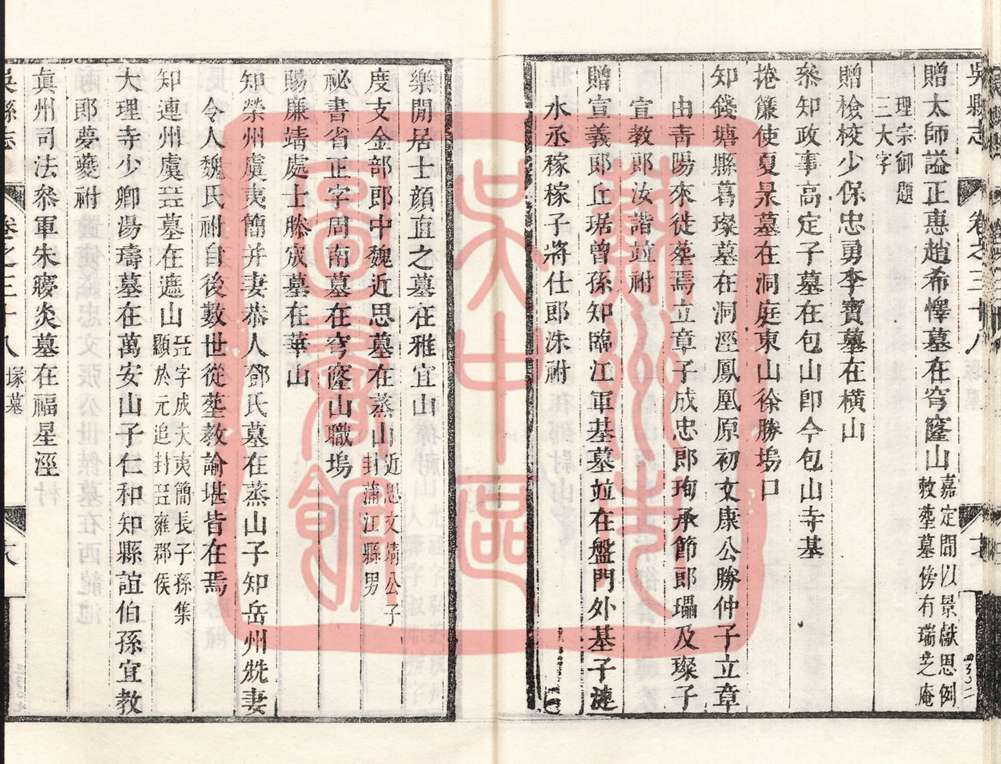 吳縣志 卷之三十八
贈太師謚正惠趙希懌墓在穹窿山嘉定間以景獻恩例敕塟墓傍有瑞芝庵
理宗御題三大字
贈檢校少保忠勇李寶墓在橫山
叅知政事高定子墓在包山卽今包山寺基
捲簾使夏杲墓在洞庭東山徐勝塢口
知錢塘縣葛璨墓在洞涇鳳凰原初文康公勝仲子立章
由靑陽來徙塟焉立章子成忠郎珣承節郎瓃及璨子
宣敎郎汝諧竝祔
贈宣義郎丘琚曾孫知臨江軍基墓竝在盤門外基子漣
水丞稼稼子將仕郎洙祔
樂閒居士顏直之墓在雅宜山
度支金部郎中魏近思墓在蒸山近思文靖公子封蒲江縣男
祕書省正字周南墓在穹窿山職塢
賜廉靖處士滕宬墓在華山
知榮州虞夷簡并妻恭人鄧氏墓在蒸山子知岳州兟妻
令人魏氏祔自後數世從塟敎諭堪皆在焉
知連州虞㠭墓在遮山㠭字成夫夷簡長子孫集顯於元追封㠭雍郡侯
大理寺少卿湯璹墓在萬安山子仁和知縣誼伯孫宜敎
郎夢夔祔
眞州司法叅軍朱㬊炎墓在福星涇
吳縣志 卷之三十八 塚墓
蘇州市吳中區圖書館